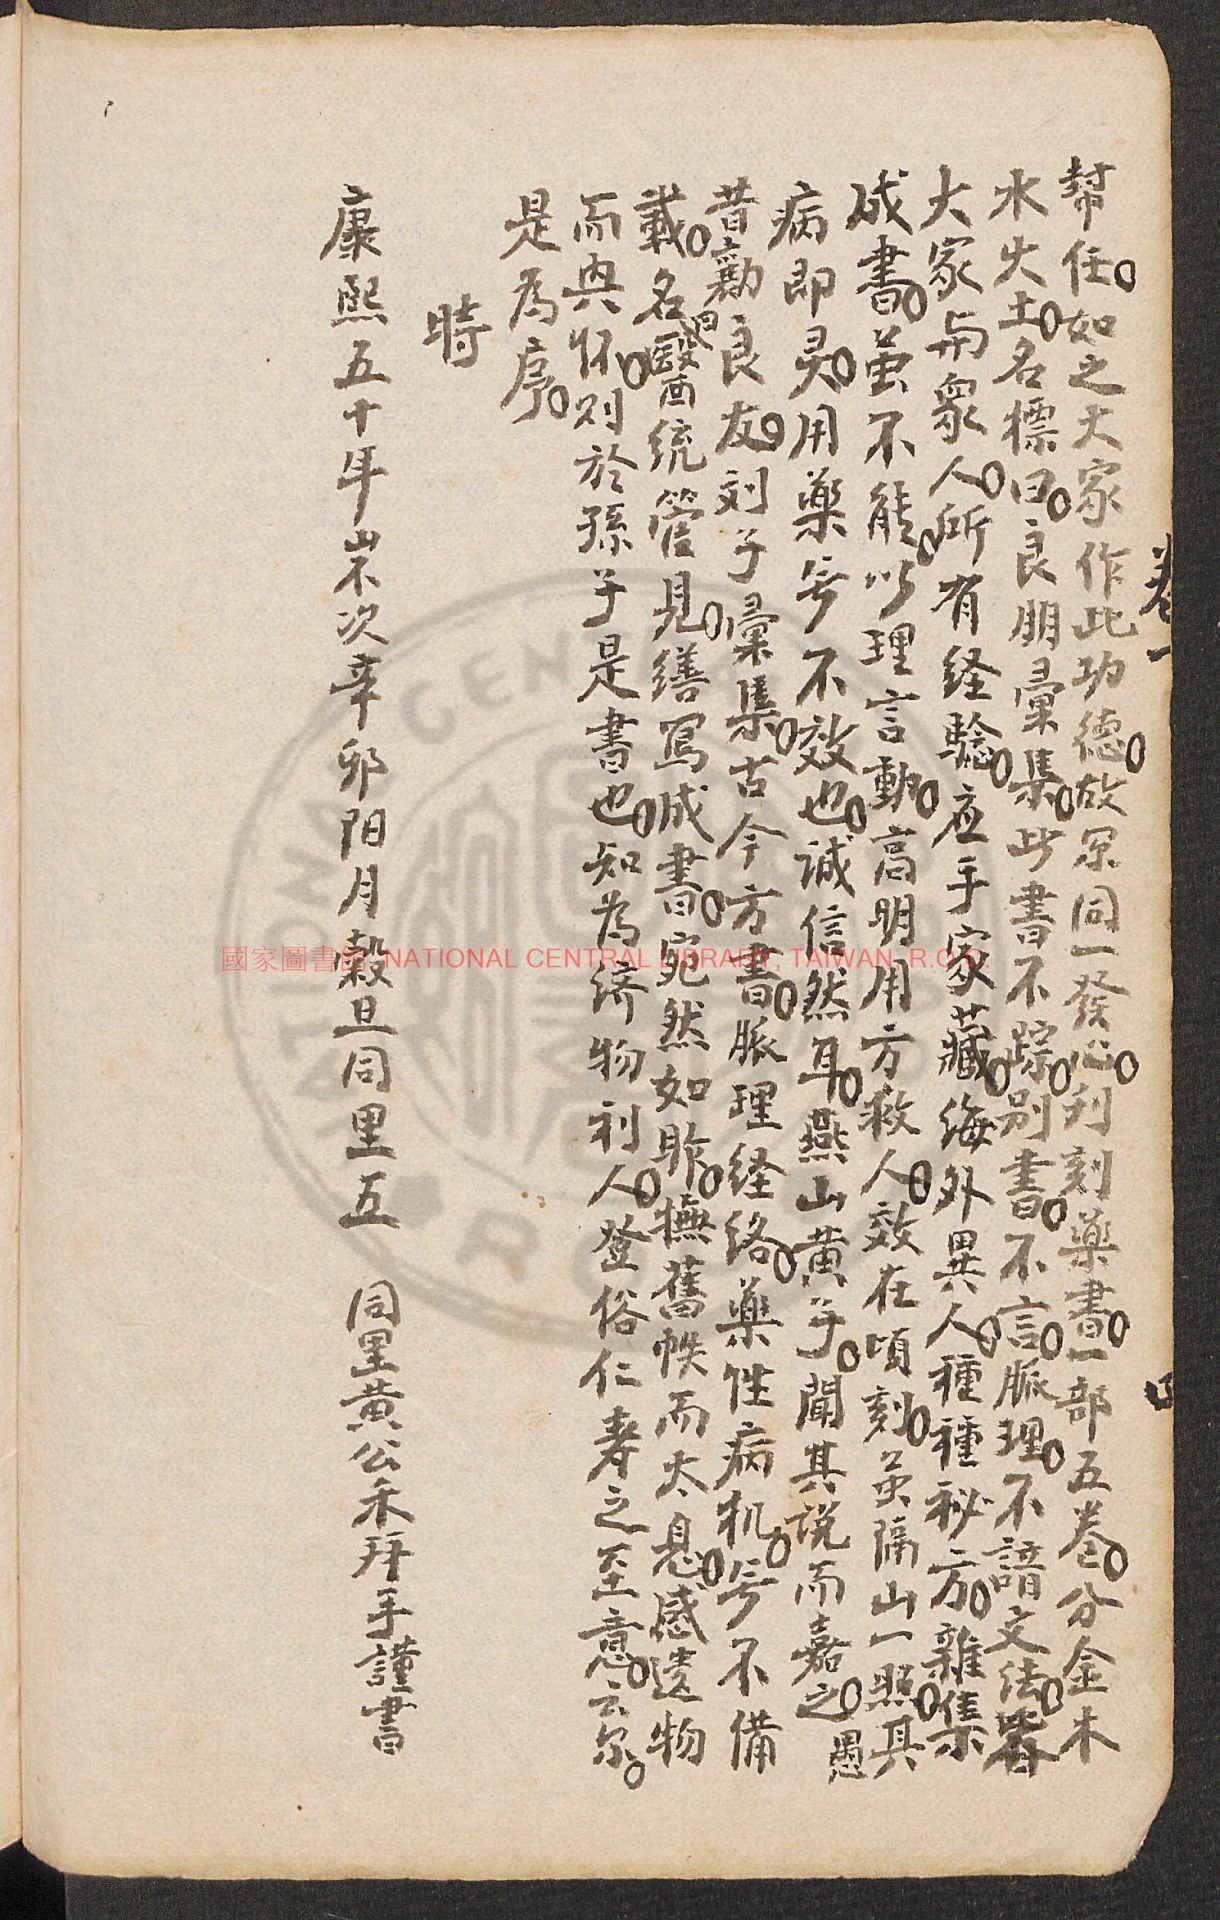 卷一
幇任。如之大家作此功德。故眾同一發心。刋刻藥書。一部五卷。分金木
水火土。名標曰。良朋彙集。此書不踪別書。不言脈理。不諳文法。畧
大家与衆人。所有経驗。应手家藏。海外異人。種種秘方。雜集
成書。虽不能。以理言動。高明用方救人。效在頃刻。虽隔山一照。其
病即灵。用藥無不效也。誠信然耳。燕山黄子。聞其說而嘉之。愚
昔勸曰良友。刘子。彙集。古今方書。脈理経絡。藥性病机。無不備
載。名醫統管見。繕寫成書。宛然如昨。撫舊帙而太息。感遗物
而興怀。则於孫子是書也。知為濟物利人。登俗仁寿之至意。云尔。
是為序。
時
康熙五十年嵗次辛卯陽月穀旦同里五 同里黄公禾拜手謹書
國家圖書館 NATIONAL CENTRAL LIBRARY, TAIWAN, R.O.C